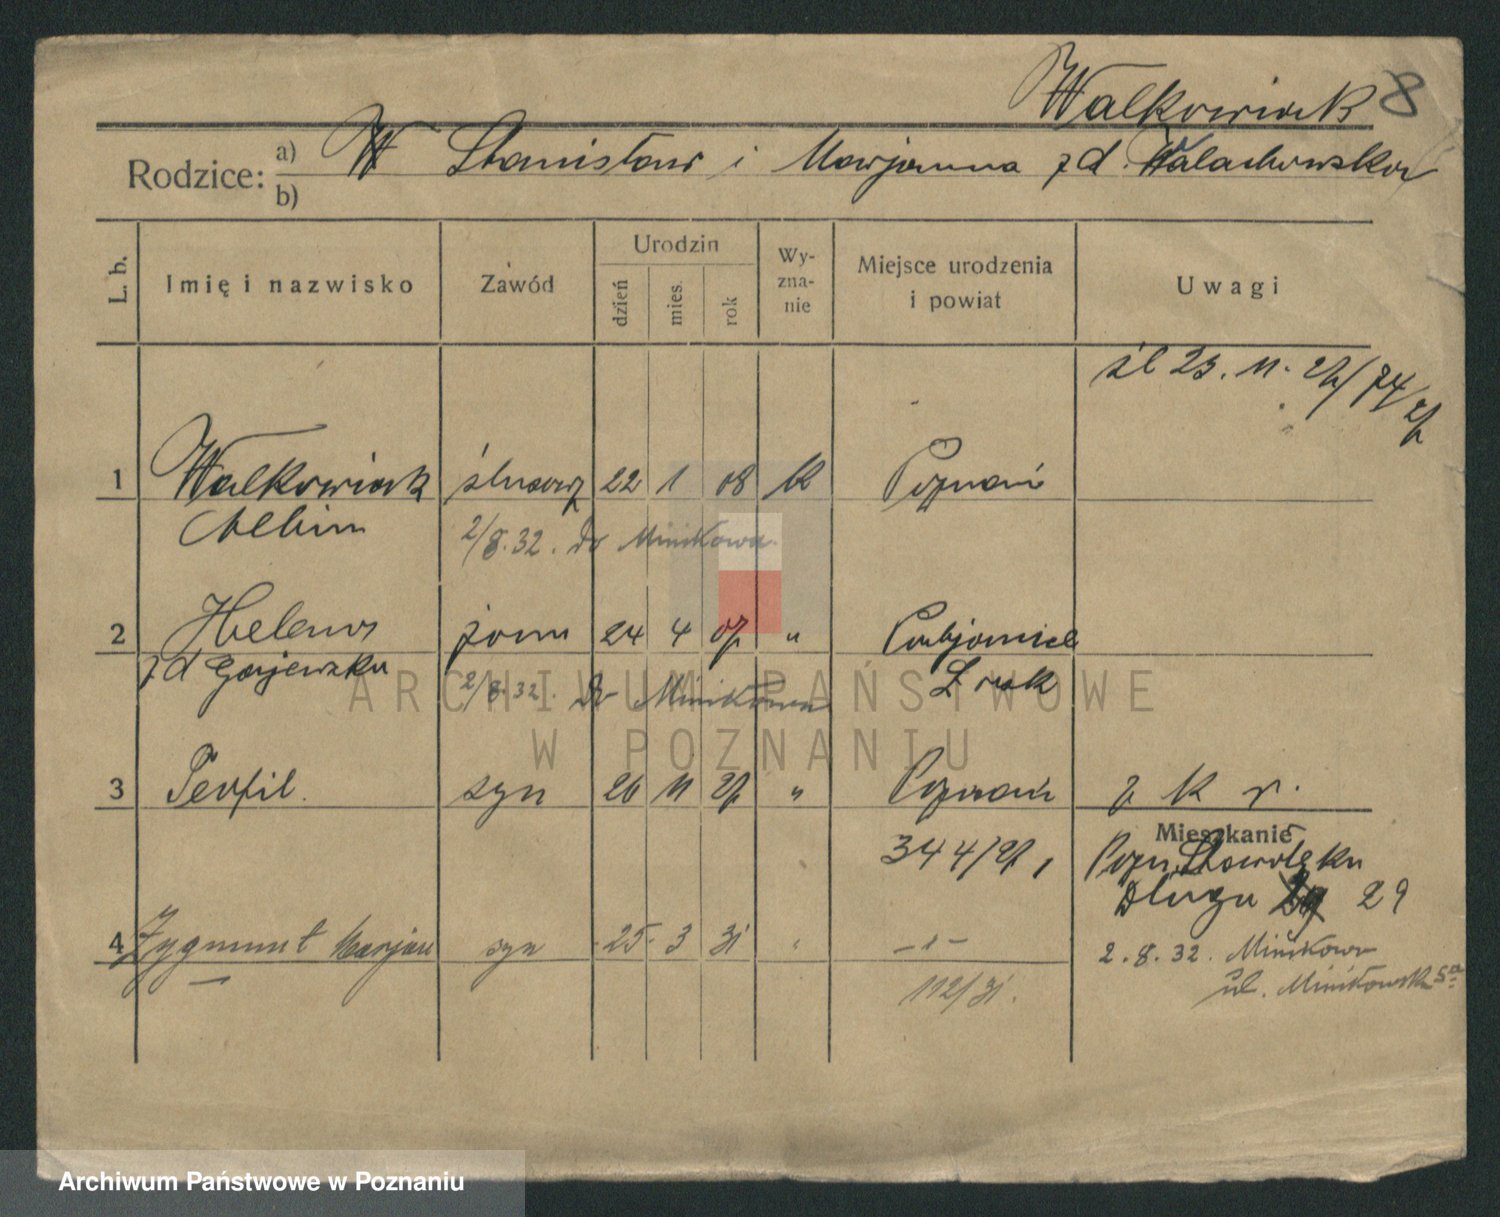 Walkowiak 8
Rodzice: a) b) W Stanisław i Marjanna z d. Walachowska
L. b. Imię i nazwisko Zawód Urodzin dzień mies. rok Wyznanie Miejsce urodzenia i powiat Uwagi
śl 23. 11. 27/74/27
1 Walkowiak ślusarz 22 1 08 k Poznań
2/8.32. do Minikowa
2 Helena żona 24 4 07 "
z d Gajewska 2/8.32. do Minikowa
3 Teofil. syn 26 11 27 " Poznań z k r.
Mieszkanie
344/27, Pozn. Starołęka
Długa 29
4 Zygmunt Marjan syn 25 3 31 " -"-
2.8.32. Minikowo
112/31. ul. Minikowska 5a
ARCHIWUM PAŃSTWOWE
W POZNANIU
Archiwum Państwowe w Poznaniu